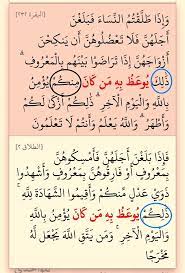 البقرة ٢٣٢
وَإِذَا طَلَّقْتُمُ النِّسَاءَ فَبَلَغْنَ
أَجَلَهُنَّ فَلَا تَعْضُلُوهُنَّ أَن يَنكِحْنَ
أَزْوَاجَهُنَّ إِذَا تَرَاضَوْا بَيْنَهُم بِالْمَعْرُوفِ
ذَٰلِكَ يُوعَظُ بِهِ مَن كَانَ مِنكُمْ يُؤْمِنُ
بِاللَّهِ وَالْيَوْمِ الْآخِرِ ذَٰلِكُمْ أَزْكَىٰ لَكُمْ
وَأَطْهَرُ وَاللَّهُ يَعْلَمُ وَأَنتُمْ لَا تَعْلَمُونَ
الطلاق ٢
فَإِذَا بَلَغْنَ أَجَلَهُنَّ فَأَمْسِكُوهُنَّ
بِمَعْرُوفٍ أَوْ فَارِقُوهُنَّ بِمَعْرُوفٍ وَأَشْهِدُوا
ذَوَيْ عَدْلٍ مِّنكُمْ وَأَقِيمُوا الشَّهَادَةَ لِلَّهِ
ذَٰلِكُمْ يُوعَظُ بِهِ مَن كَانَ يُؤْمِنُ بِاللَّهِ
وَالْيَوْمِ الْآخِرِ وَمَن يَتَّقِ اللَّهَ يَجْعَل لَّهُ
مَخْرَجًا